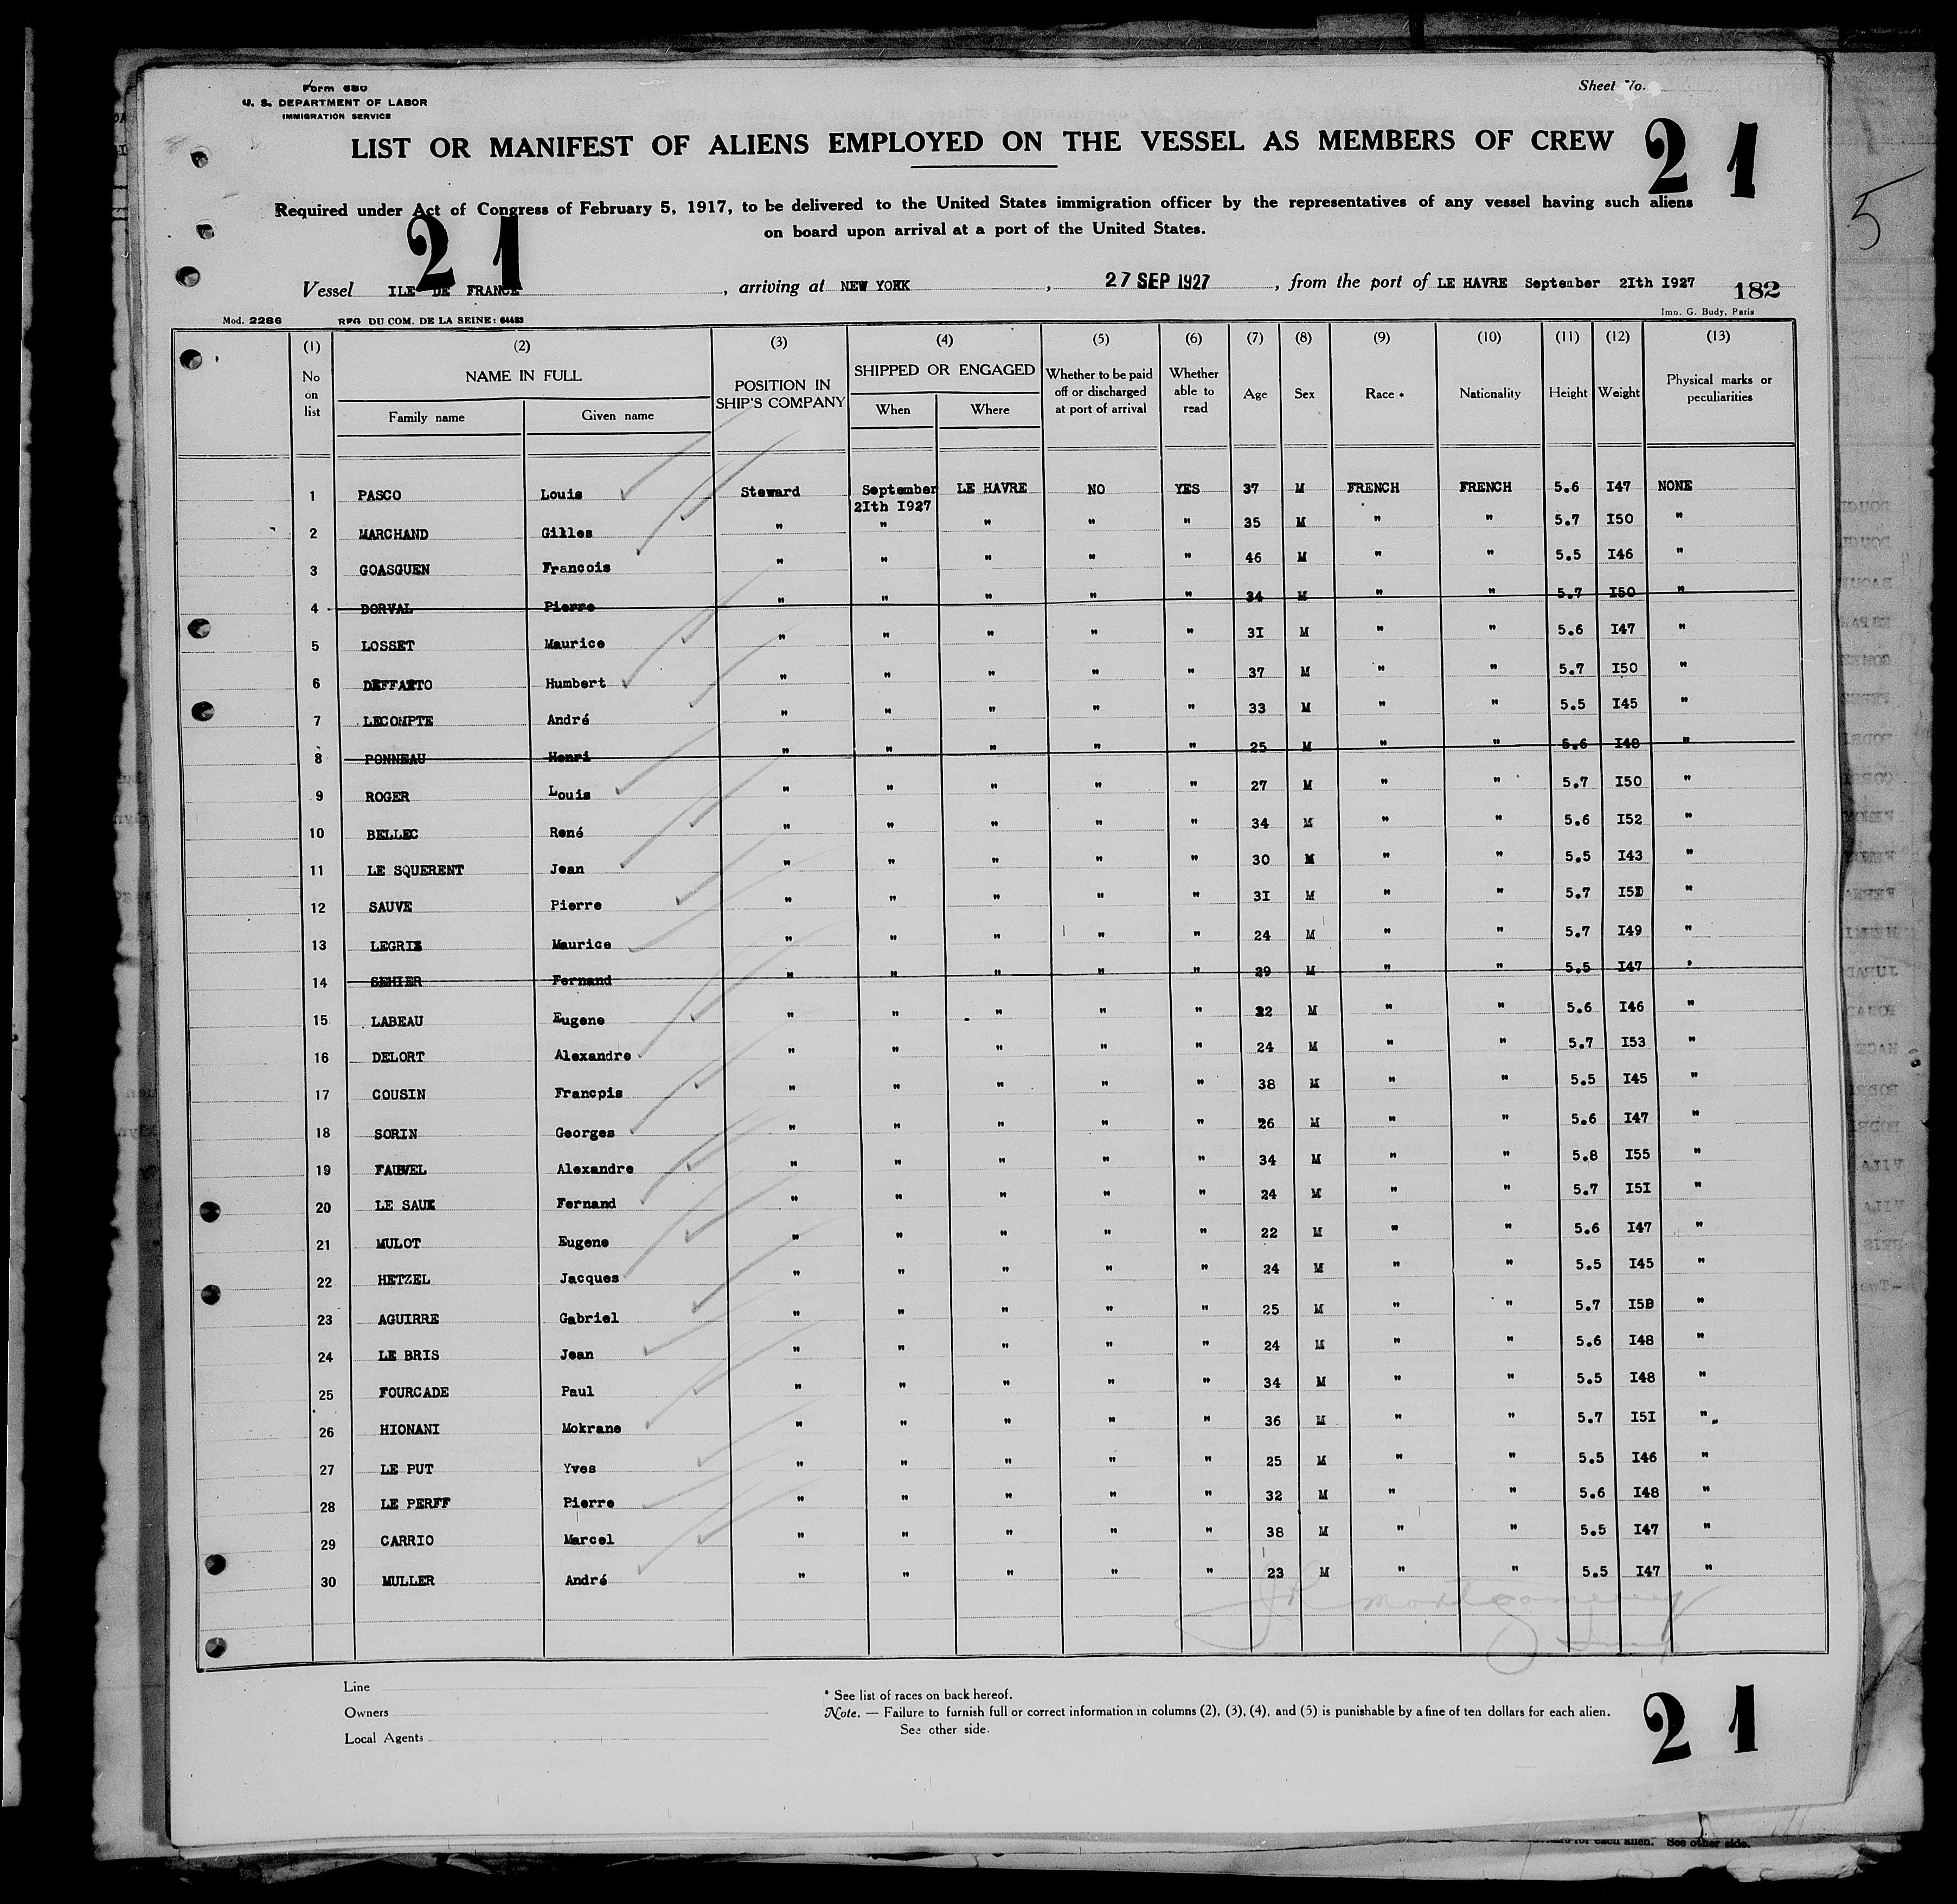 Form 680
U. S. DEPARTMENT OF LABOR
IMMIGRATION SERVICE
Sheet No.
LIST OR MANIFEST OF ALIENS EMPLOYED ON THE VESSEL AS MEMBERS OF CREW 21
Required under Act of Congress of February 5, 1917, to be delivered to the United States immigration officer by the representatives of any vessel having such aliens
on board upon arrival at a port of the United States.
21
5
Vessel ILE DE FRANCE, arriving at NEW YORK, 27 SEP 1927, from the port of LE HAVRE September 2Ith I927 182
Mod. 2286 REG. DU COM. DE LA SEINE: 64483 Imp. G. Budy, Paris
(1) (2) (3) (4) (5) (6) (7) (8) (9) (10) (11) (12) (13)
No on list NAME IN FULL Family name Given name POSITION IN SHIP'S COMPANY SHIPPED OR ENGAGED When Where Whether to be paid off or discharged at port of arrival Whether able to read Age Sex Race * Nationality Height Weight Physical marks or peculiarities
1 PASCO Louis Steward September 2Ith I927 LE HAVRE NO YES 37 M FRENCH FRENCH 5.6 I47 NONE
2 MARCHAND Gilles " " " " " 35 M " " 5.7 I50 "
3 GOASGUEN Francois " " " " " 46 M " " 5.5 I46 "
4 DORVAL Pierre " " " " " 34 M " " 5.7 I50 "
5 LOSSET Maurice " " " " " 3I M " " 5.6 I47 "
6 Humbert " " " " " 37 M " " 5.7 I50 "
7 LECOMPTE André " " " " " 33 M " " 5.5 I45 "
8 PONNEAU Henri " " " " " 25 M " " 5.6 I48 "
9 ROGER Louis " " " " " 27 M " " 5.7 I50 "
10 BELLEC René " " " " " 34 M " " 5.6 I52 "
11 LE SQUERENT Jean " " " " " 30 M " " 5.5 I43 "
12 SAUVE Pierre " " " " " 3I M " " 5.7 "
13 LEGRIS Maurice " " " " " 24 M " " 5.7 I49 "
14 SEHIER Fernand " " " " " 29 M " " 5.5 I47 "
15 LABEAU Eugene " " " " " 22 M " " 5.6 I46 "
16 DELORT Alexandre " " " " " 24 M " " 5.7 I53 "
17 COUSIN Francpis " " " " " 38 M " " 5.5 I45 "
18 SORIN Georges " " " " " 26 M " " 5.6 I47 "
19 FAUVEL Alexandre " " " " " 34 M " " 5.8 I55 "
20 LE SAUX Fernand " " " " " 24 M " " 5.7 I5I "
21 MULOT Eugene " " " " " 22 M " " 5.6 I47 "
22 HETZEL Jacques " " " " " 24 M " " 5.5 I45 "
23 AGUIRRE Gabriel " " " " " 25 M " " 5.7 "
24 LE BRIS Jean " " " " " 24 M " " 5.6 I48 "
25 FOURCADE Paul " " " " " 34 M " " 5.5 I48 "
26 HIONANI Mokrane " " " " " 36 M " " 5.7 I5I "
27 LE PUT Yves " " " " " 25 M " " 5.5 I46 "
28 LE PERFF Pierre " " " " " 32 M " " 5.6 I48 "
29 CARRIO Marcel " " " " " 38 M " " 5.5 I47 "
30 MULLER André " " " " " 23 M " " 5.5 I47 "
Montgomery
Line
Owners
Local Agents
* See list of races on back hereof.
Note. — Failure to furnish full or correct information in columns (2), (3), (4), and (5) is punishable by a fine of ten dollars for each alien.
See other side.
21
for each alien. See other side.